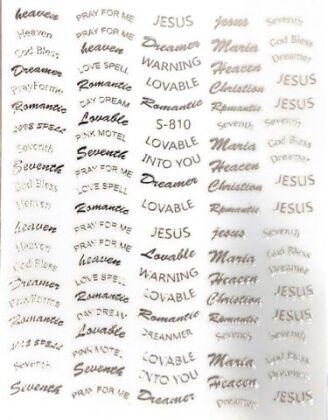 heaven PRAY FOR ME JESUS Jesus Seventh
Heaven PRAY FOR ME Dreamer Maria God Bless
God Bless heaven WARNING Heacen Dreamer
Dreamer LOVE SPELL LOVABLE Christion JESUS
PrayForme Romantic Romantic Rpmantic JESUS
Romantic DAY DREAM S-810 Seventh Seventh
LOVE SPELL Lovable LOVABLE Maria God Bless
Seventh PINK MOTEL INTO YOU Heacen Dreamer
Seventh Seventh Dreamer Christion JESUS
God Bless PRAY FOR ME LOVABLE Rpmantic JESUS
Heaven LOVE SPELL JESUS jesus Seventh
heaven Romantic Lovable Maria God Bless
Heaven PRAY FOR ME WARNING Heacen Dreamer
God Bless PRAY FOR ME LOVABLE Christion JESUS
Dreamer heaven Romantic Rpmantic JESUS
PrayForme LOVE SPELL DREANMER Seventh Seventh
Romantic Romantic LOVABLE Maria God Bless
LOVE SPELL DAY DREAM INTO YOU Heacen Dreamer
Seventh Lovable Dreamer Dreamer JESUS
Seventh PINK MOTEL
Seventh
PRAY FOR ME